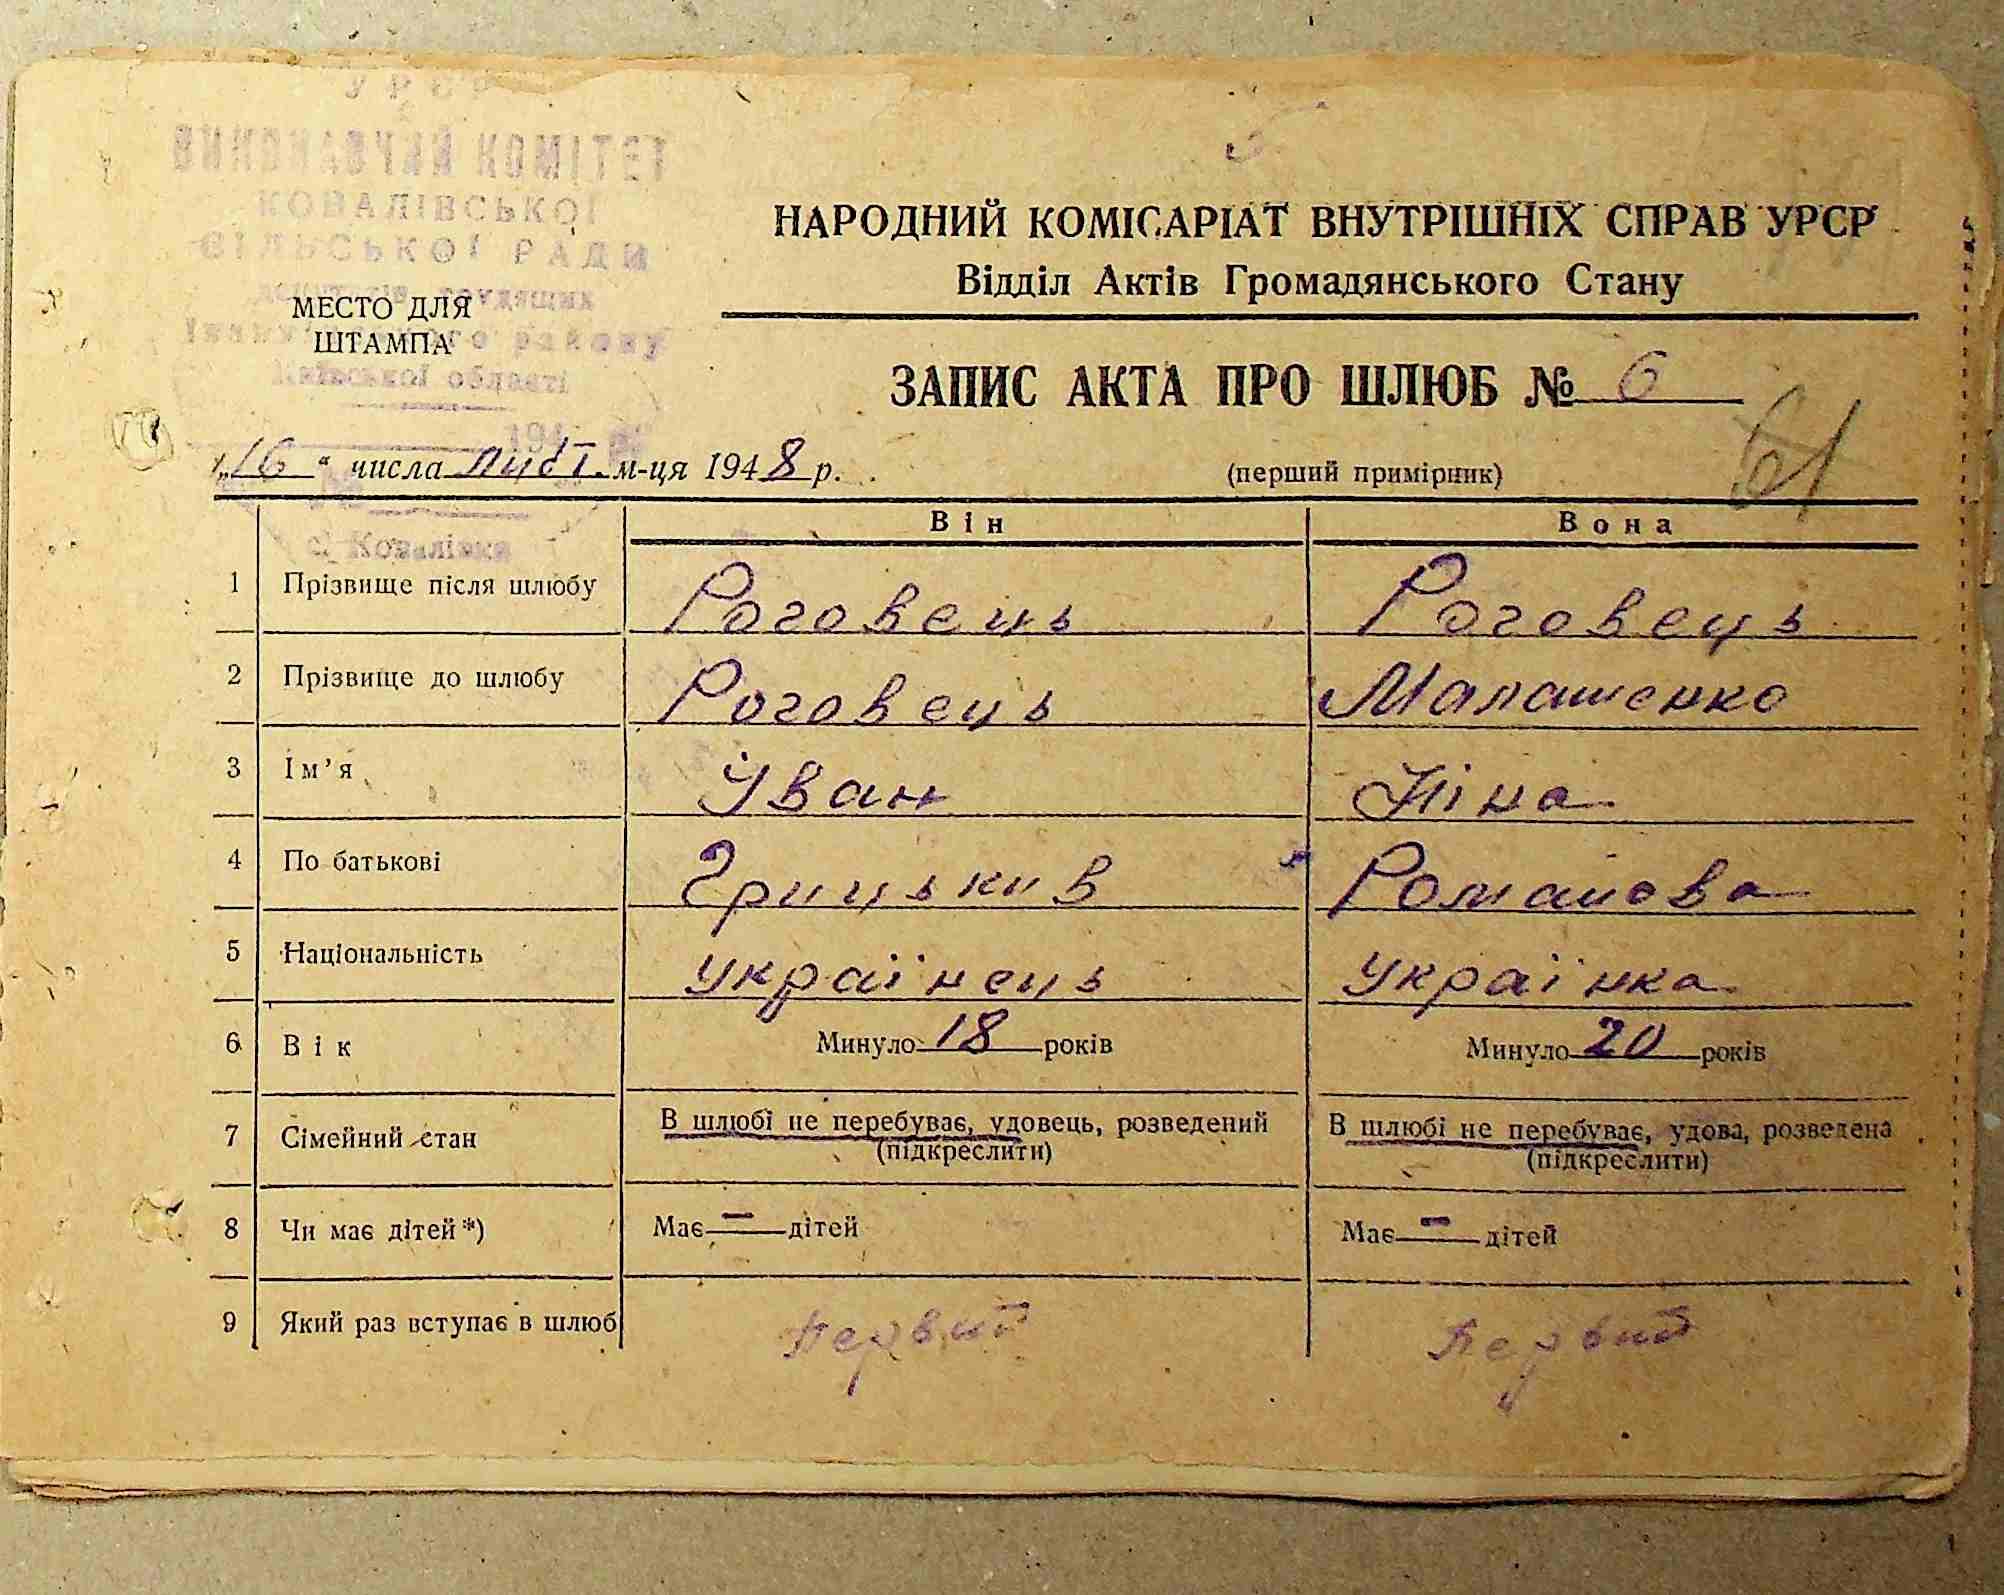 УРСР
ВИКОНАВЧИЙ КОМІТЕТ
КОВАЛІВСЬКОЇ
СІЛЬСЬКОЇ РАДИ
депутатів трудящих
району
Київської області
194
с. Ковалівка
МЕСТО ДЛЯ
ШТАМПА
НАРОДНИЙ КОМІСАРІАТ ВНУТРІШНІХ СПРАВ УРСР
Відділ Актів Громадянського Стану
ЗАПИС АКТА ПРО ШЛЮБ № 6
61
„16“ числа лист. м-ця 1948 р.
(перший примірник)
Він Вона
1 Прізвище після шлюбу Роговець Роговець
2 Прізвище до шлюбу Роговець Малашенко
3 Ім’я Іван Ніна
4 По батькові Грицькив Романова
5 Національність українець українка
6 Вік Минуло 18 років Минуло 20 років
7 Сімейний стан В шлюбі не перебуває, удовець, розведений (підкреслити) В шлюбі не перебуває, удова, розведена (підкреслити)
8 Чи має дітей*) Має — дітей Має — дітей
9 Який раз вступає в шлюб Первий Первий